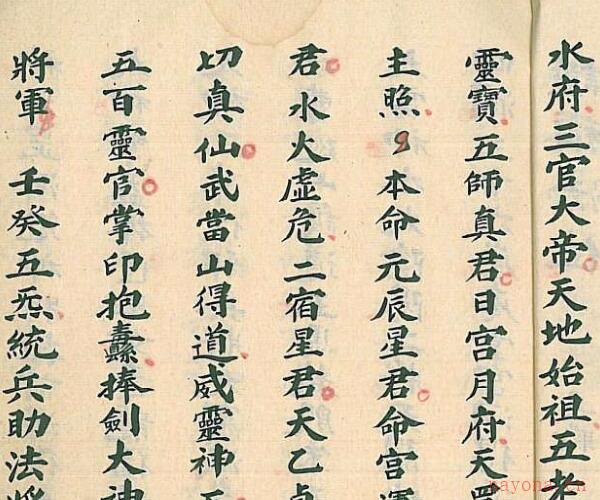 水府三官大帝天地始祖五老
靈寶五師真君日宮月府天罡
主照本命元辰星君命宮運
君水火虛危二宿星君天乙真
切真仙武當山得道威靈神兵
五百靈官掌印抱纛捧劍大神
將軍 壬癸五炁統兵助法將